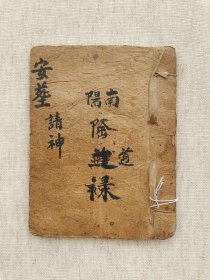 南
道
陽陰祿
安塟
請神